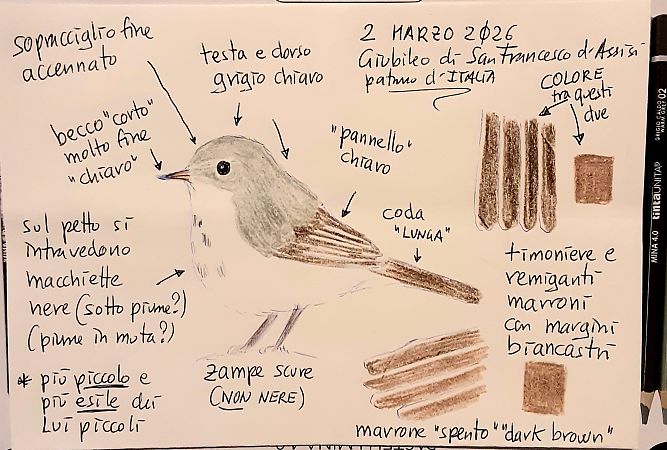 sopracciglio fine
accennato
testa e dorso
grigio chiaro
2 MARZO 2026
Giubileo di San Francesco d'Assisi
patrono d'ITALIA
COLORE
tra questi
due
becco "corto"
molto fine
"chiaro"
"pannello"
chiaro
coda
"LUNGA"
sul petto si
intravedono
macchiette
nere (sotto piume?)
(piume in muta?)
timoniere e
remiganti
marroni
con margini
biancastri
* più piccolo e
più esile dei
Lui piccoli
zampe scure
(NON NERE)
marrone "spento" "dark brown"
MINA 4.0 tintaUNITA
02